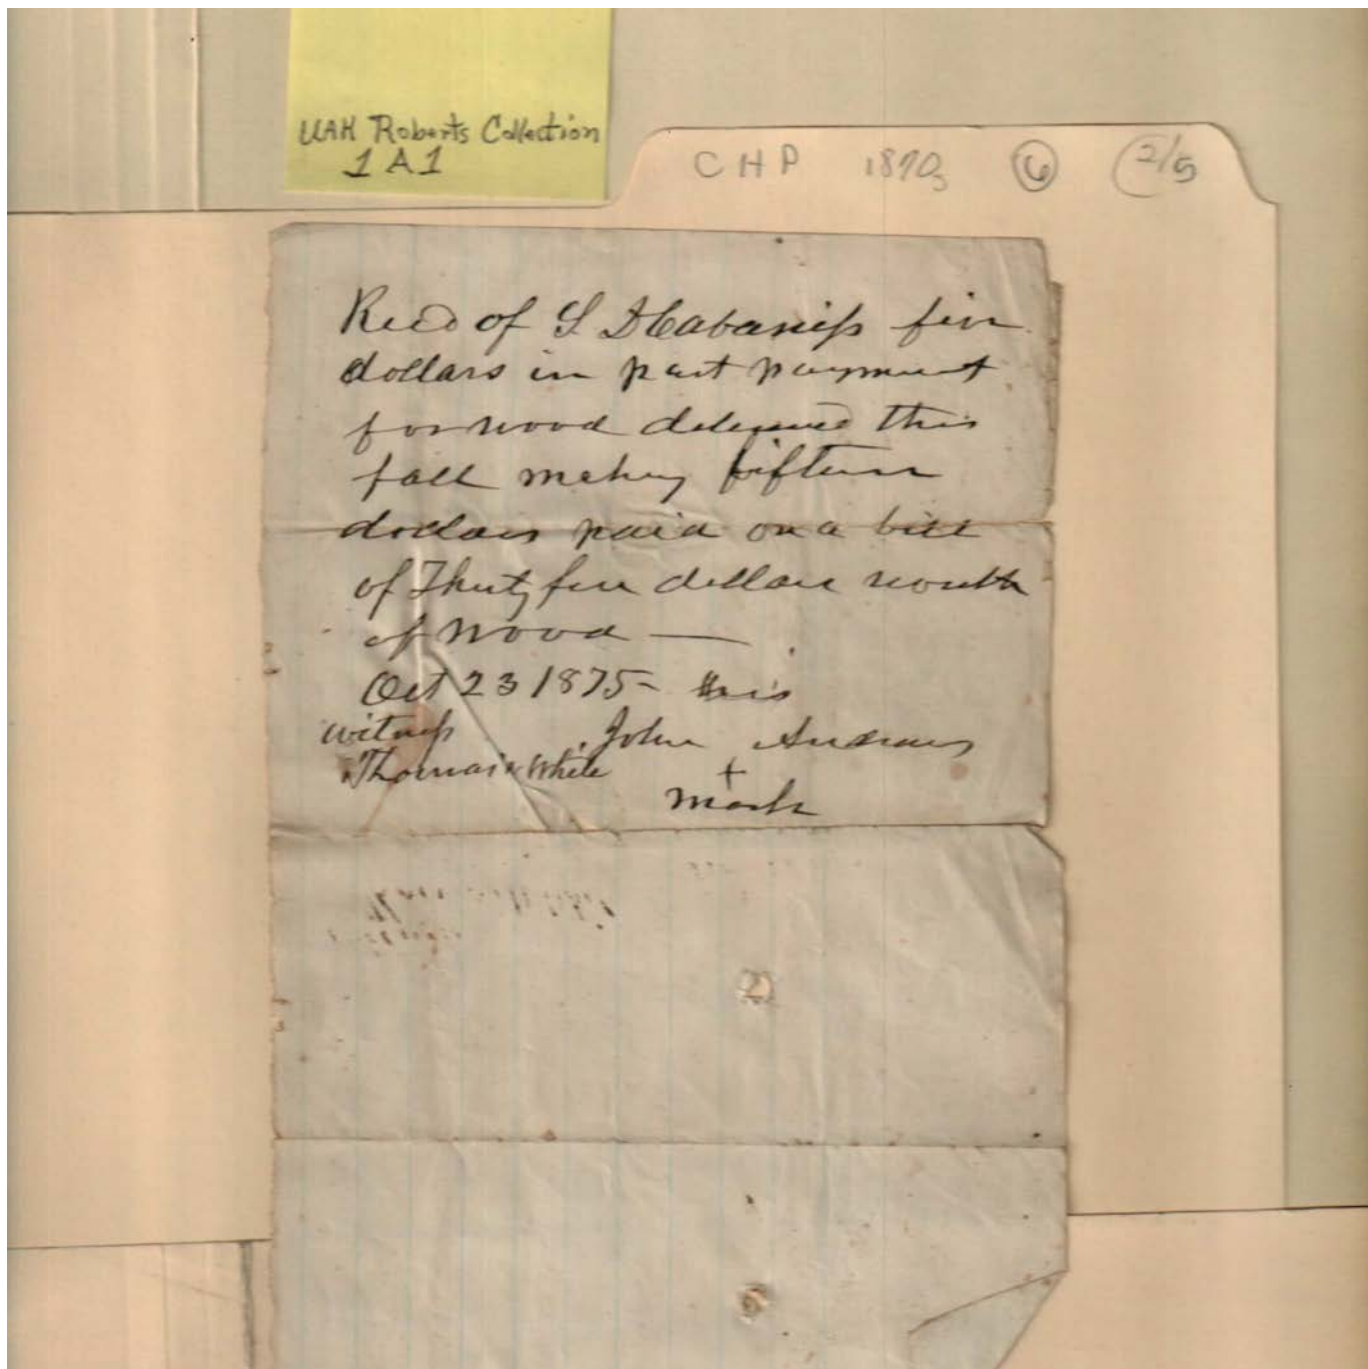 UAH Roberts Collection
1A1
CHP 1870s 6 2/5
Recd of S D Cabaniss five
dollars in part payment
for wood delivered this
fall making fifteen
dollars paid on a bill
of Thirty five dollars worth
of wood —
Oct 23 1875- his
witness John Andrews
Thomas White +
mark